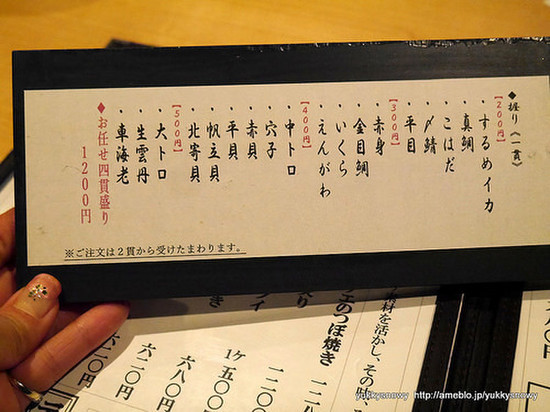 ◆握り《一貫》
【200円】
・するめイカ
・真鯛
・こはだ
・〆鯖
・平目
【300円】
・赤身
・金目鯛
・いくら
・えんがわ
【400円】
・中トロ
・穴子
・赤貝
・平貝
・帆立貝
・北寄貝
【500円】
・大トロ
・生雲丹
・車海老
◆お任せ四貫盛り
1200円
※ご注文は2貫から受けたまわります。
素材を活かし、その
エのつぼ焼き
1ケ五〇〇
七八〇円
六二〇円
yukkysnowy http://ameblo.jp/yukkysnowy